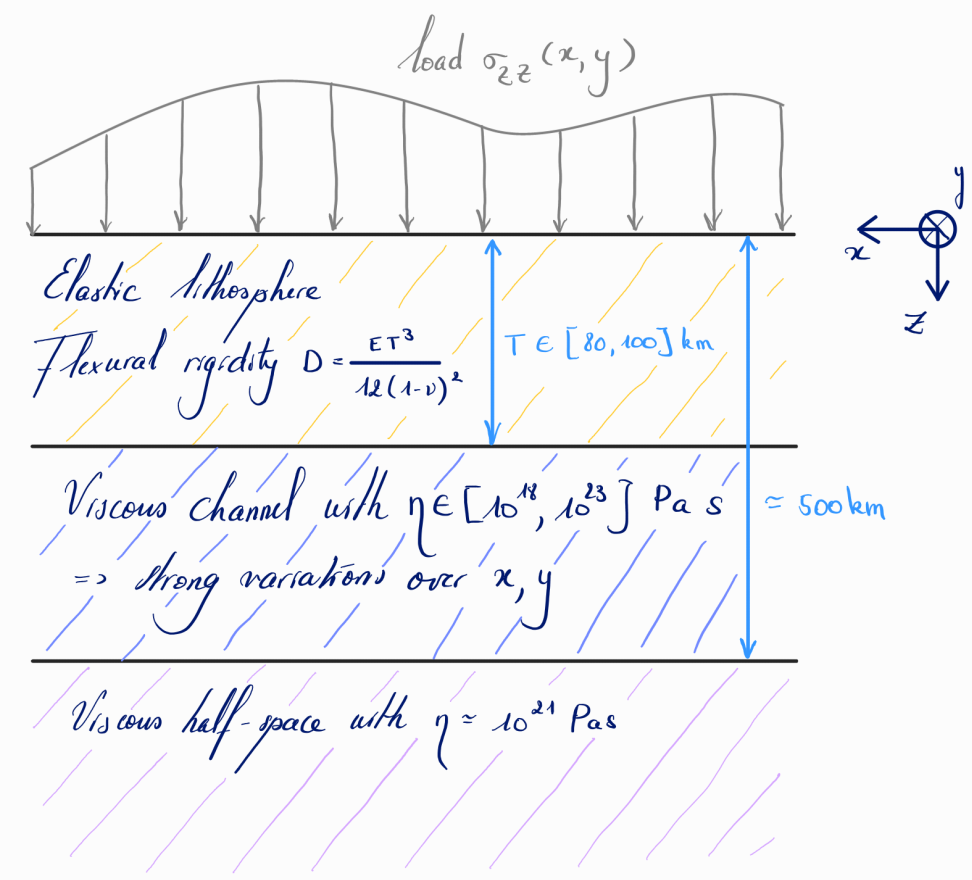 load σzz (x, y)
y
x
z
Elastic lithosphere
Flexural rigidity D = ET³ / 12(1-ν)²
T ∈ [80, 100] km
Viscous channel with η ∈ [10¹⁸, 10²³] Pa s
≈ 500 km
=> strong variations over x, y
Viscous half-space with η ≈ 10²¹ Pas